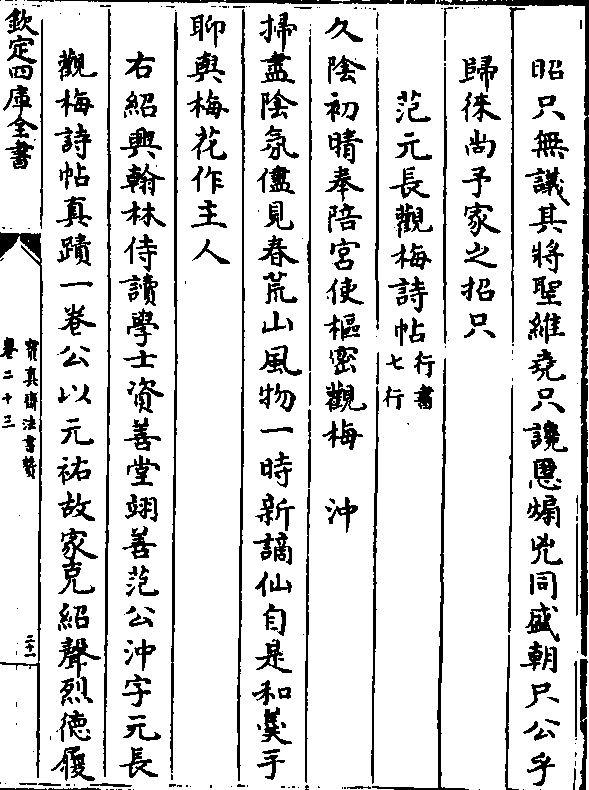 昭只無議其將聖維堯只讒慝煽兇同盛朝只公乎
歸徠尚予家之招只
范元長觀梅詩帖行書七行
久陰初晴奉陪宮使樞密觀梅　沖
掃盡陰氛儘見春荒山風物一時新謫仙自是和羮手
聊與梅花作主人
右紹興翰林侍讀學士資善堂翊善范公沖字元長
觀梅詩帖真蹟一卷公以元祐故家克紹聲烈德履
欽定四庫全書
寶真齋法書贊
卷二十三